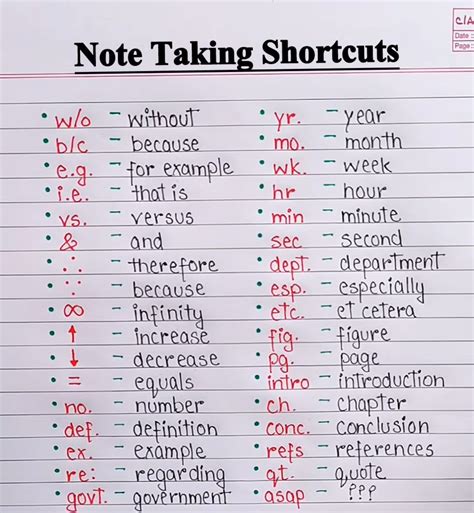 cla
Date :
Page :
Note Taking Shortcuts
• w/o – without
• b/c – because
• e.g. – for example
• i.e. – that is
• vs. – versus
• & – and
• ∴ – therefore
• ∵ – because
• ∞ – infinity
• ↑ – increase
• ↓ – decrease
• = – equals
• no. – number
• def. – definition
• ex. – example
• re: – regarding
• govt. – government
• yr. – year
• mo. – month
• wk. – week
• hr – hour
• min – minute
• sec – second
• dept. – department
• esp. – especially
• etc. – et cetera
• fig. – figure
• pg. – page
• intro – introduction
• ch. – chapter
• conc. – conclusion
• refs – references
• qt. – quote
• asap – ???